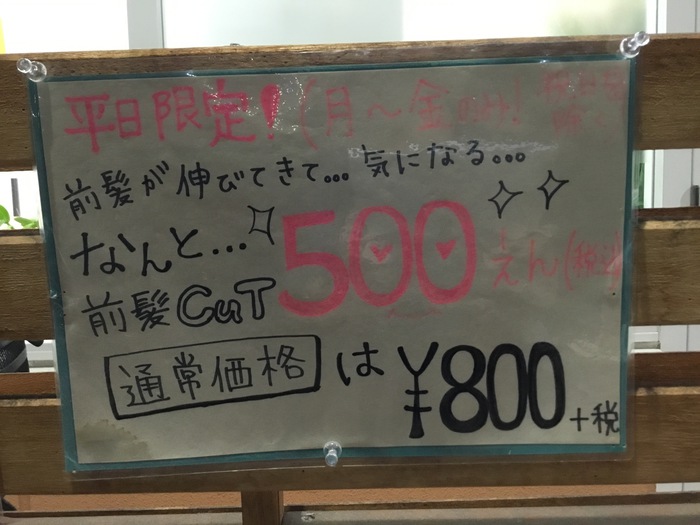 平日限定！(月〜金のみ！
除く
前髪が伸びてきて...気になる...
なんと...
500えん(税
前髪CuT
通常価格は¥800+税